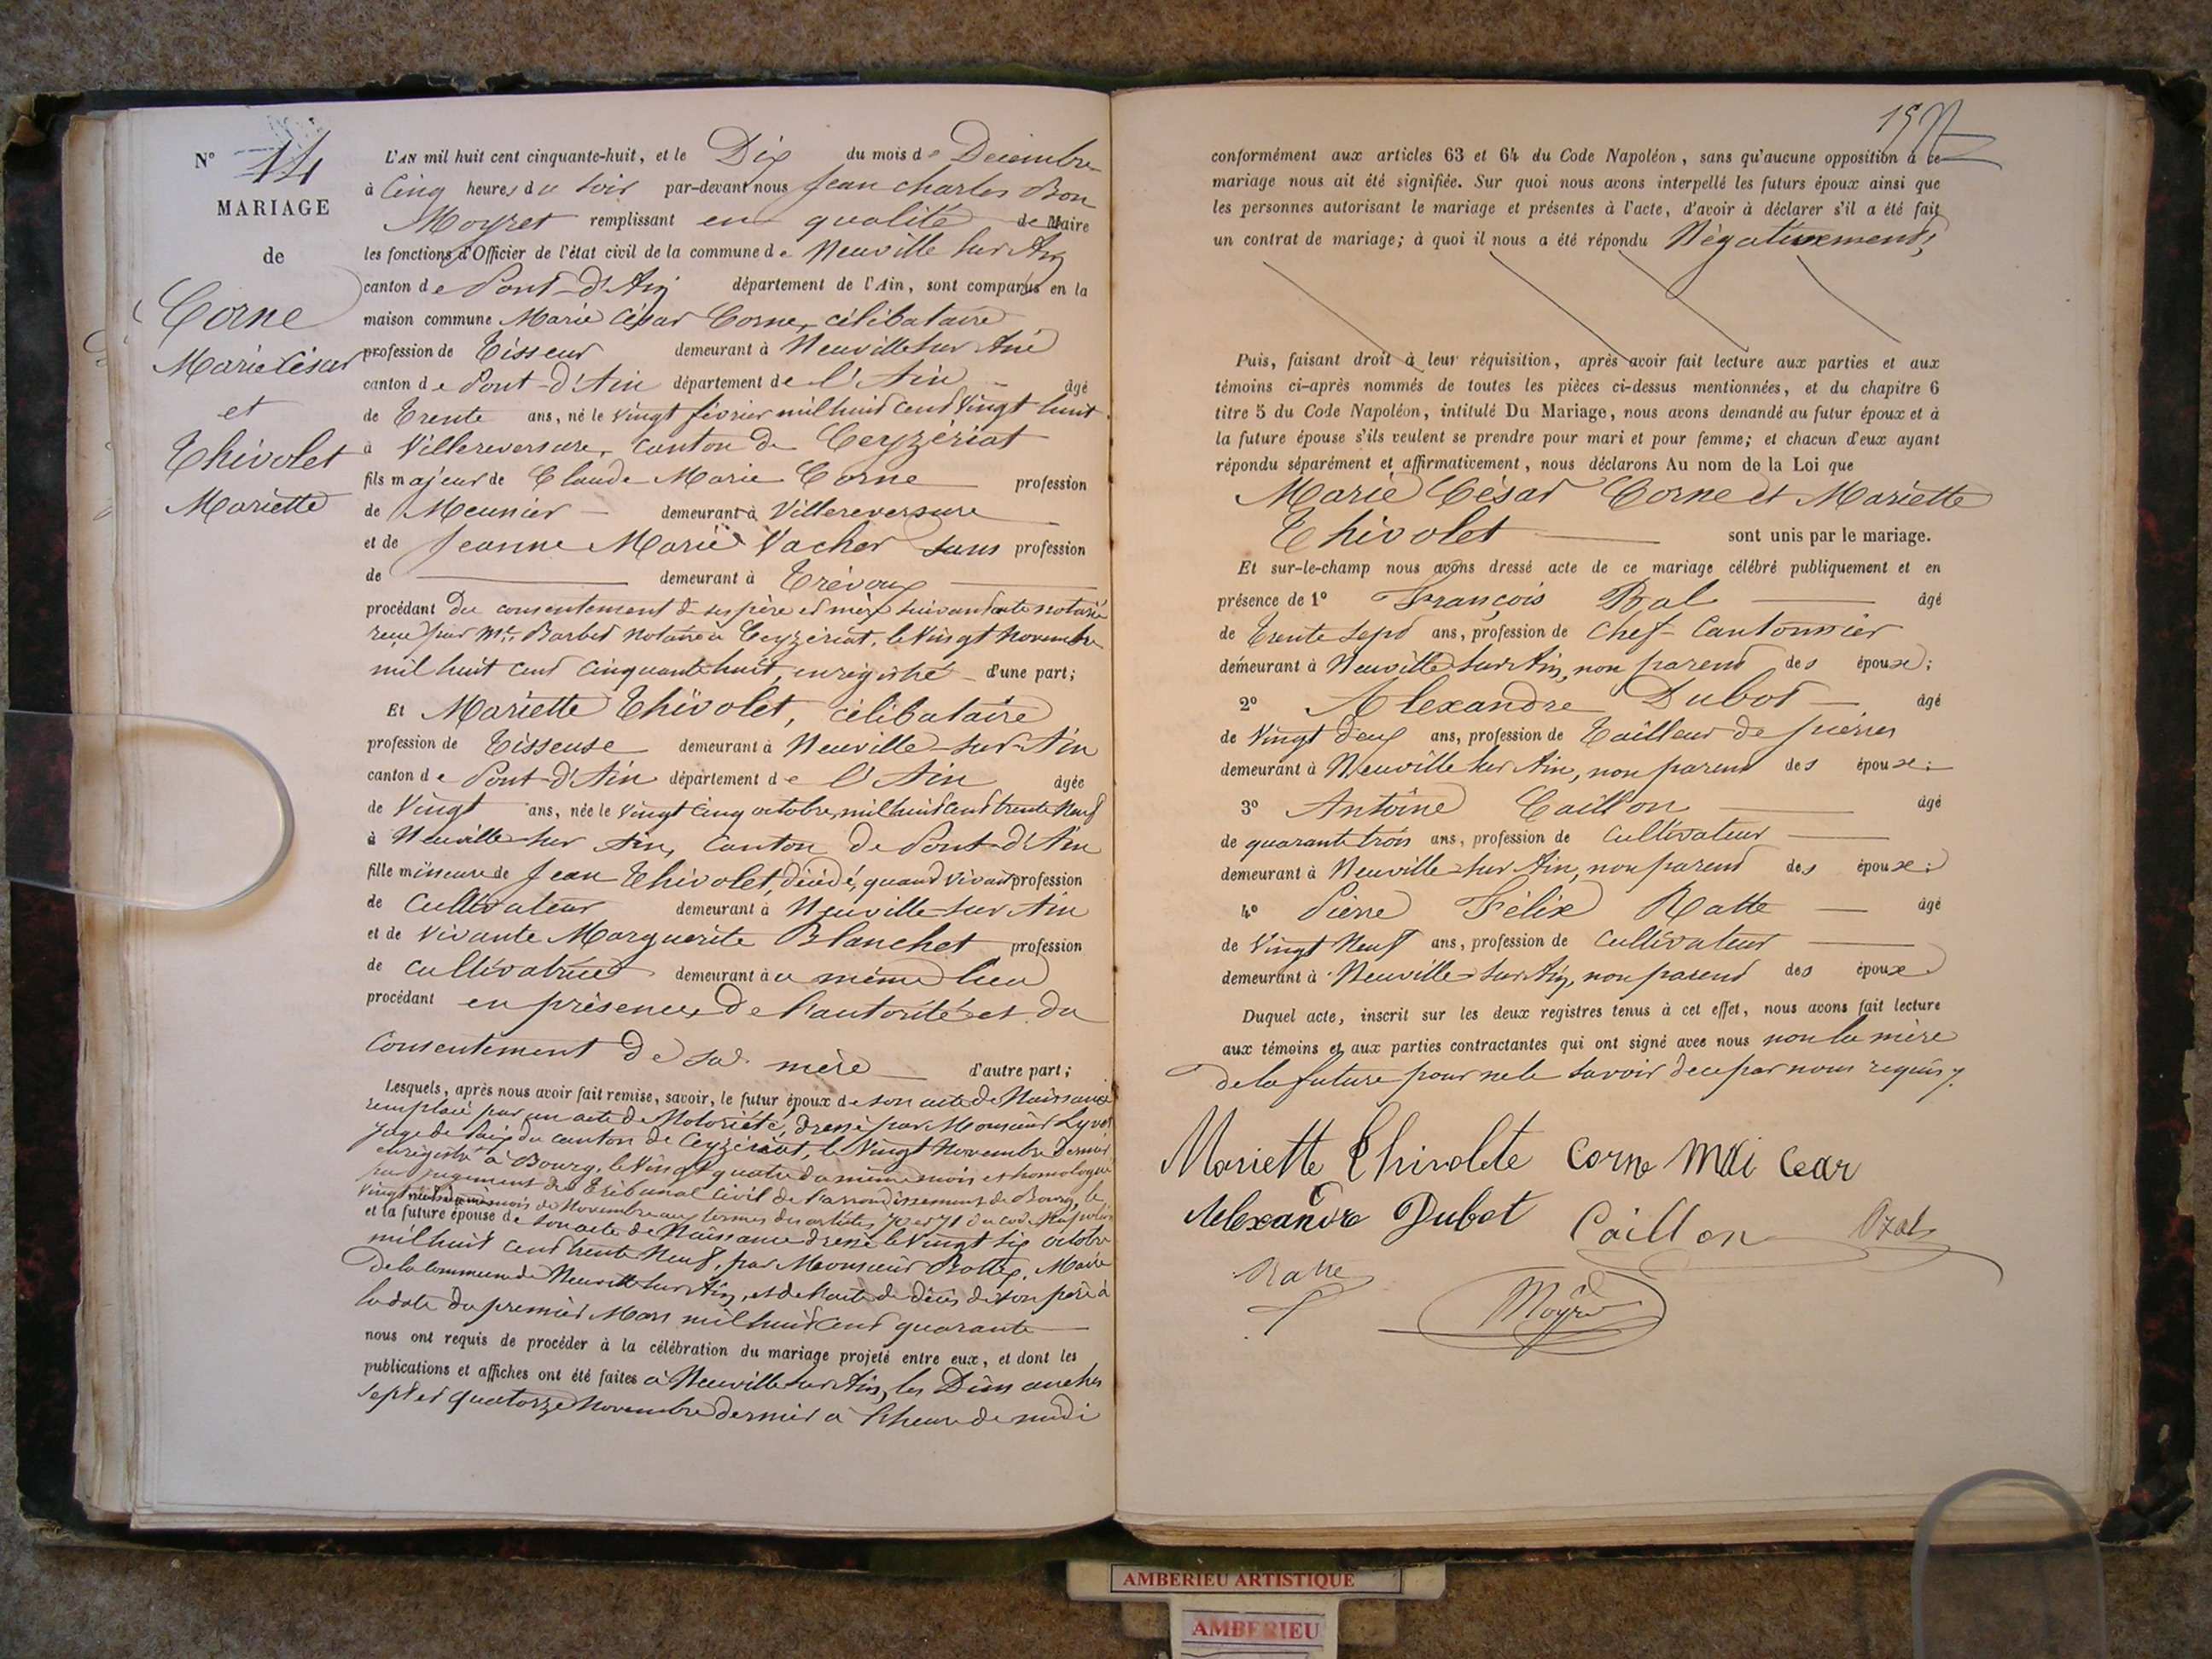 N° 14
MARIAGE
de
Corne
Marie César
et
Thivolet
Mariette
L'AN mil huit cent cinquante-huit, et le Dix du mois de Décembre
à Cinq heures du soir par-devant nous Jean Charles Bon
Moyret remplissant en qualité de Maire
les fonctions d'Officier de l'état civil de la commune de Neuville sur Ain
canton de Pont-d'Ain département de l'Ain, sont comparus en la
maison commune Marie César Corne, célibataire
profession de Tisseur demeurant à Neuville sur Ain
canton de Pont-d'Ain département de l'Ain âgé
de Trente ans, né le vingt février mil huit cent vingt huit
à Villereversure, Canton de Ceyzériat
fils majeur de Claude Marie Corne profession
de Meunier demeurant à Villereversure
et de Jeanne Marie Vacher sans profession
de demeurant à Trévoux
procédant du consentement de ses père et mère suivant acte notarié
reçu par Me Barbet notaire à Ceyzériat, le Vingt Novembre
mil huit cent cinquante huit, enregistré d'une part;
Et Mariette Thivolet, célibataire
profession de Tisseuse demeurant à Neuville-sur-Ain
canton de Pont-d'Ain département de l'Ain âgée
de Vingt ans, née le Vingt Cinq octobre, mil huit cent trente Neuf
à Neuville sur Ain, Canton de Pont-d'Ain
fille mineure de Jean Thivolet, décédé, quand vivait profession
de Cultivateur demeurant à Neuville sur Ain
et de vivante Marguerite Blanchet profession
de Cultivatrice demeurant au même lieu
procédant en présence, de l'autorité et du
Consentement de sa mère d'autre part;
Lesquels, après nous avoir fait remise, savoir, le futur époux de son acte de Naissance
remplacé par un acte de Notoriété, dressé par Monsieur Lyvet
Juge de Paix du canton de Ceyzériat, le Vingt Novembre Dernier
enregistré à Bourg, le Vingt quatre du même mois et homologué
par jugement du Tribunal Civil de l'arrondissement de Bourg, le
Vingt mois de Novembre aux termes des articles 70 et 71 du Code Napoléon
et la future épouse de son acte de Naissance dressé le Vingt six octobre
mil huit cent trente Neuf, par Monsieur Maire
De la Commune de Neuville sur Ain, et de l'acte de décès de son père à
la date du premier Mars mil huit cent quarante
nous ont requis de procéder à la célébration du mariage projeté entre eux, et dont les
publications et affiches ont été faites à Neuville sur Ain, les Dimanches
sept et quatorze Novembre dernier à l'heure de midi
conformément aux articles 63 et 64 du Code Napoléon, sans qu'aucune opposition à ce
mariage nous ait été signifiée. Sur quoi nous avons interpellé les futurs époux ainsi que
les personnes autorisant le mariage et présentes à l'acte, d'avoir à déclarer s'il a été fait
un contrat de mariage; à quoi il nous a été répondu Négativement;
Puis, faisant droit à leur réquisition, après avoir fait lecture aux parties et aux
témoins ci-après nommés de toutes les pièces ci-dessus mentionnées, et du chapitre 6
titre 5 du Code Napoléon, intitulé Du Mariage, nous avons demandé au futur époux et à
la future épouse s'ils veulent se prendre pour mari et pour femme; et chacun d'eux ayant
répondu séparément et affirmativement, nous déclarons Au nom de la Loi que
Marie César Corne et Mariette
Thivolet sont unis par le mariage.
Et sur-le-champ nous avons dressé acte de ce mariage célébré publiquement et en
présence de 1° François Bal âgé
de Trente Sept ans, profession de Chef-Cantonnier
demeurant à Neuville sur Ain, non parent des époux;
2° Alexandre Dubot âgé
de Vingt Deux ans, profession de Tailleur de pierres
demeurant à Neuville sur Ain, non parent des époux;
3° Antoine Caillon âgé
de quarante trois ans, profession de Cultivateur
demeurant à Neuville-sur Ain, non parent des époux;
4° Pierre Félix Ratte âgé
de Vingt Neuf ans, profession de Cultivateur
demeurant à Neuville-sur Ain, non parent des époux
Duquel acte, inscrit sur les deux registres tenus à cet effet, nous avons fait lecture
aux témoins et aux parties contractantes qui ont signé avec nous non la mère
de la future pour ne le savoir de ce par nous requis.
Mariette Thivolete Corne Mai Cear
Alexandre Dubot Caillon Bal
Ratte Moyret
AMBERIEU ARTISTIQUE
AMBERIEU